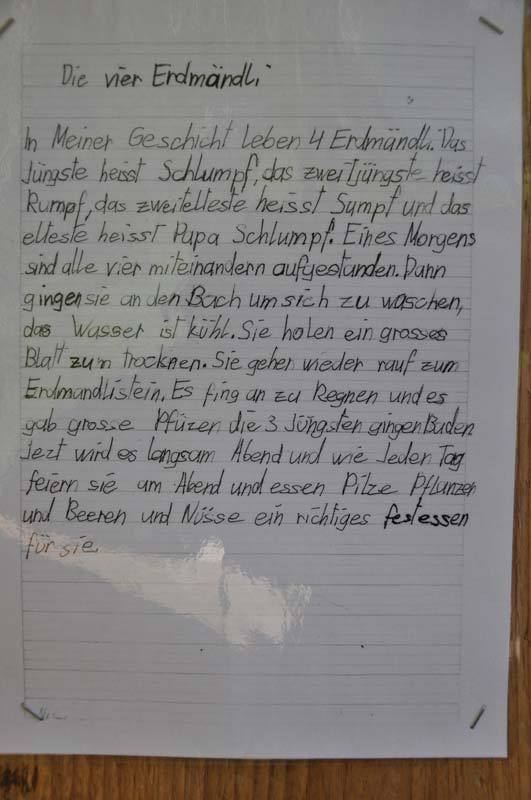 Die vier Erdmändli
In Meiner Geschicht leben 4 Erdmändli. Das
Jüngste heisst Schlumpf, das zweitjüngste heisst
Rumpf, das zweitelteste heisst Sumpf und das
elteste heisst Pupa Schlumpf. Eines Morgens
sind alle vier miteinandern aufgestunden. Dann
gingen sie an den Bach um sich zu waschen,
das Wasser ist kühl. Sie holen ein grosses
Blatt zum trocknen. Sie gehen wieder rauf zum
Erdmandlistein. Es fing an zu Regnen und es
gab grosse Pfüzen die 3 Jüngsten gingen Baden
Jezt wird es langsam Abend und wie Jeden Tag
feiern sie am Abend und essen Pilze Pflanzen
und Beeren und Nüsse ein richtiges festessen
für sie.